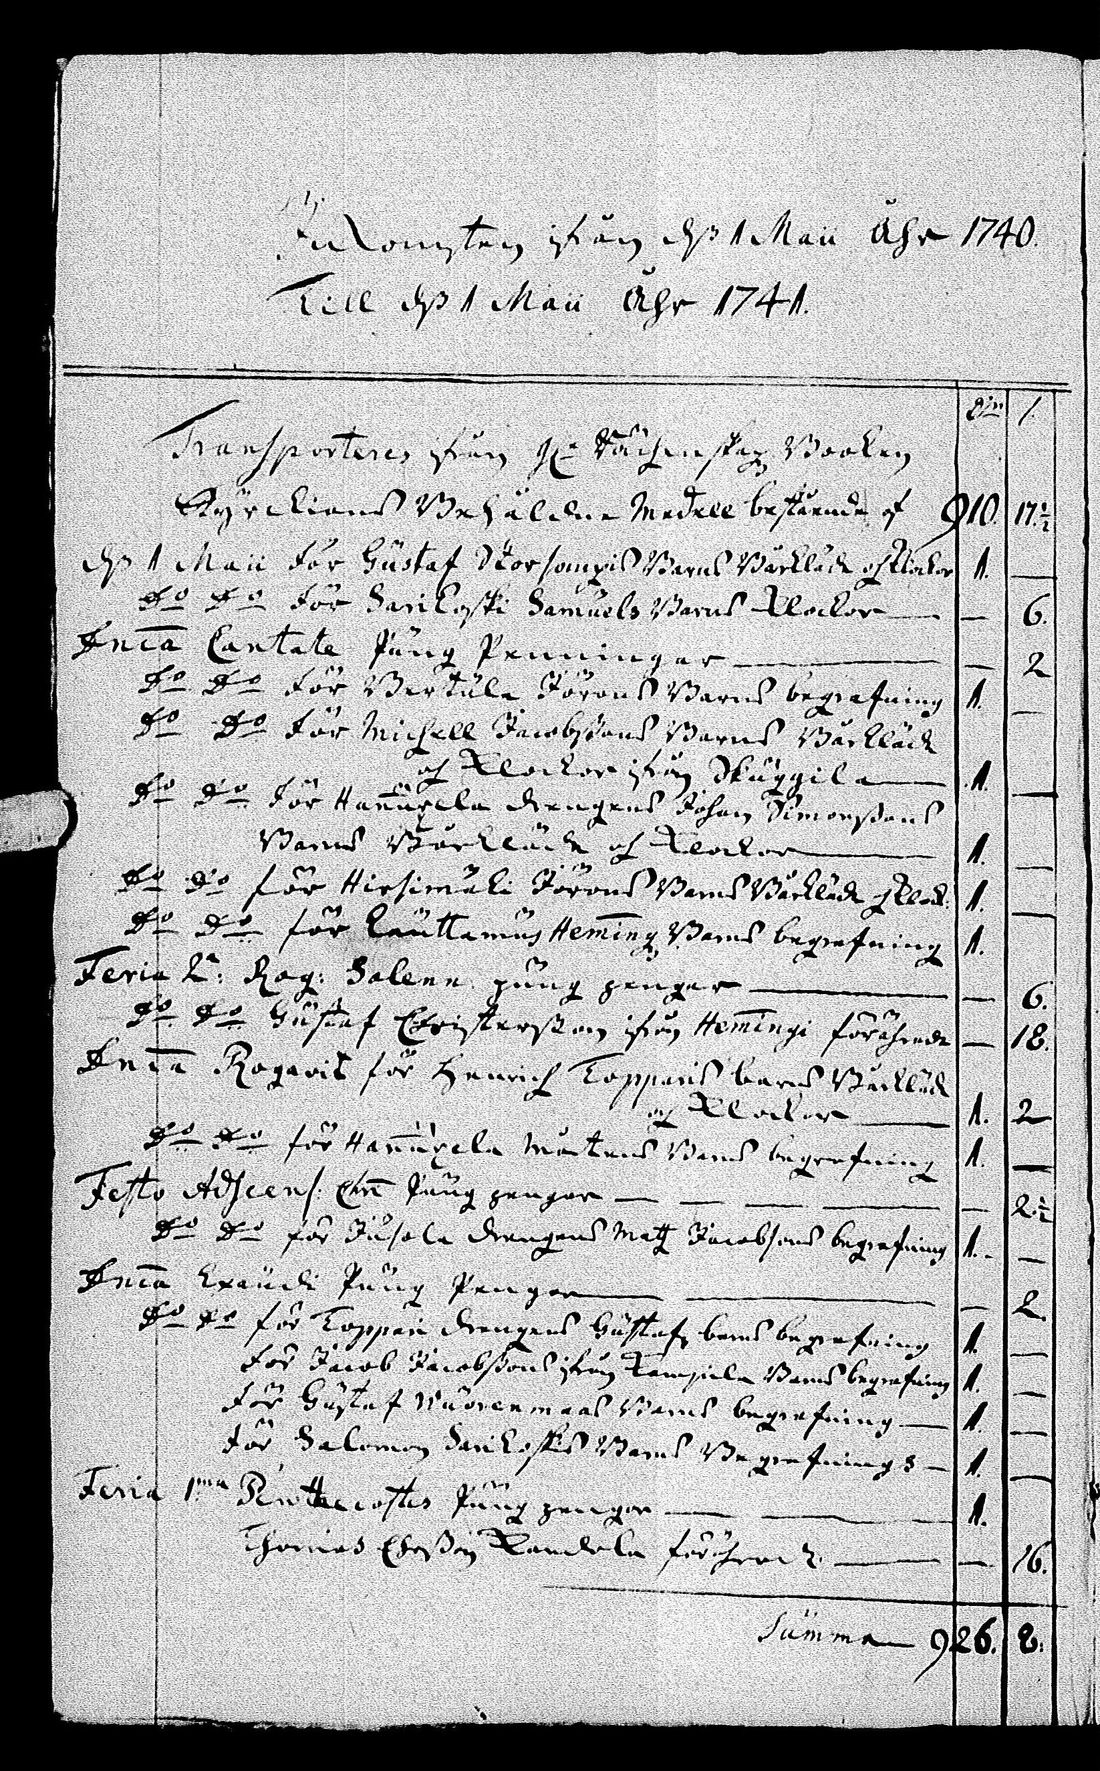 Inkomsten ifrån d 1 Maii Åhr 1740.
Till d 1 Maii Åhr 1741.
Dlr /.
Transporteres ifrån Räckenskaps Booken
Kyrckians Behåldne Medell bestående af 910. 17½
d 1 Maii för Gustaf Storsampis Barns Bårkläde och klockor 1. —
Do Do för Sarikoski Samuels Barns Klockor — — 6.
Dnica Cantate Pung Penningar — — 2
Do Do för Bertula Jörans Barns begrafning 1. —
Do Do för Michell Jacobssons Barns Bårkläde
och Klockor ifrån Skuggila — 1. —
Do Do för Hannukela drengens Johan Simonssons
Barns Bårkläde och Klockor — 1. —
Do Do för Hirsimäki Jörans Barns Bårkläde och klock: 1. —
Do Do för Heming Barns begrafning 1.
Feria 2a: Rog: Salenn pung pengar — — 6.
Do Do Gustaf Christersson ifrån Hemingi förährade — 18.
Dnica Rogavit för Henrich Topparis barns Bårkläde
och Klockor — 1. 2
Do Do för Hannukela Mårtens Barns begrafning 1. —
Festo Adscens: Chri Pung pengar — — — — — 2½
Do Do för Jusola drengens Matz Jacobsons begrafning 1. —
Dnica Exaudi Pung Pengar — — — 2.
Do Do för Toppari drengens Gustafs barns begrafning 1. —
för Jacob Jacobssons ifrån Barns begrafning 1. —
för Gustaf Wuorenmaas Barns begrafning — 1. —
för Salomon Sarikoskis Barns Begrafning — 1. —
Feria 1ma Pentecostes Pung pengar — — 1.
Thomas förährade — — 16.
Summa 926. 8.